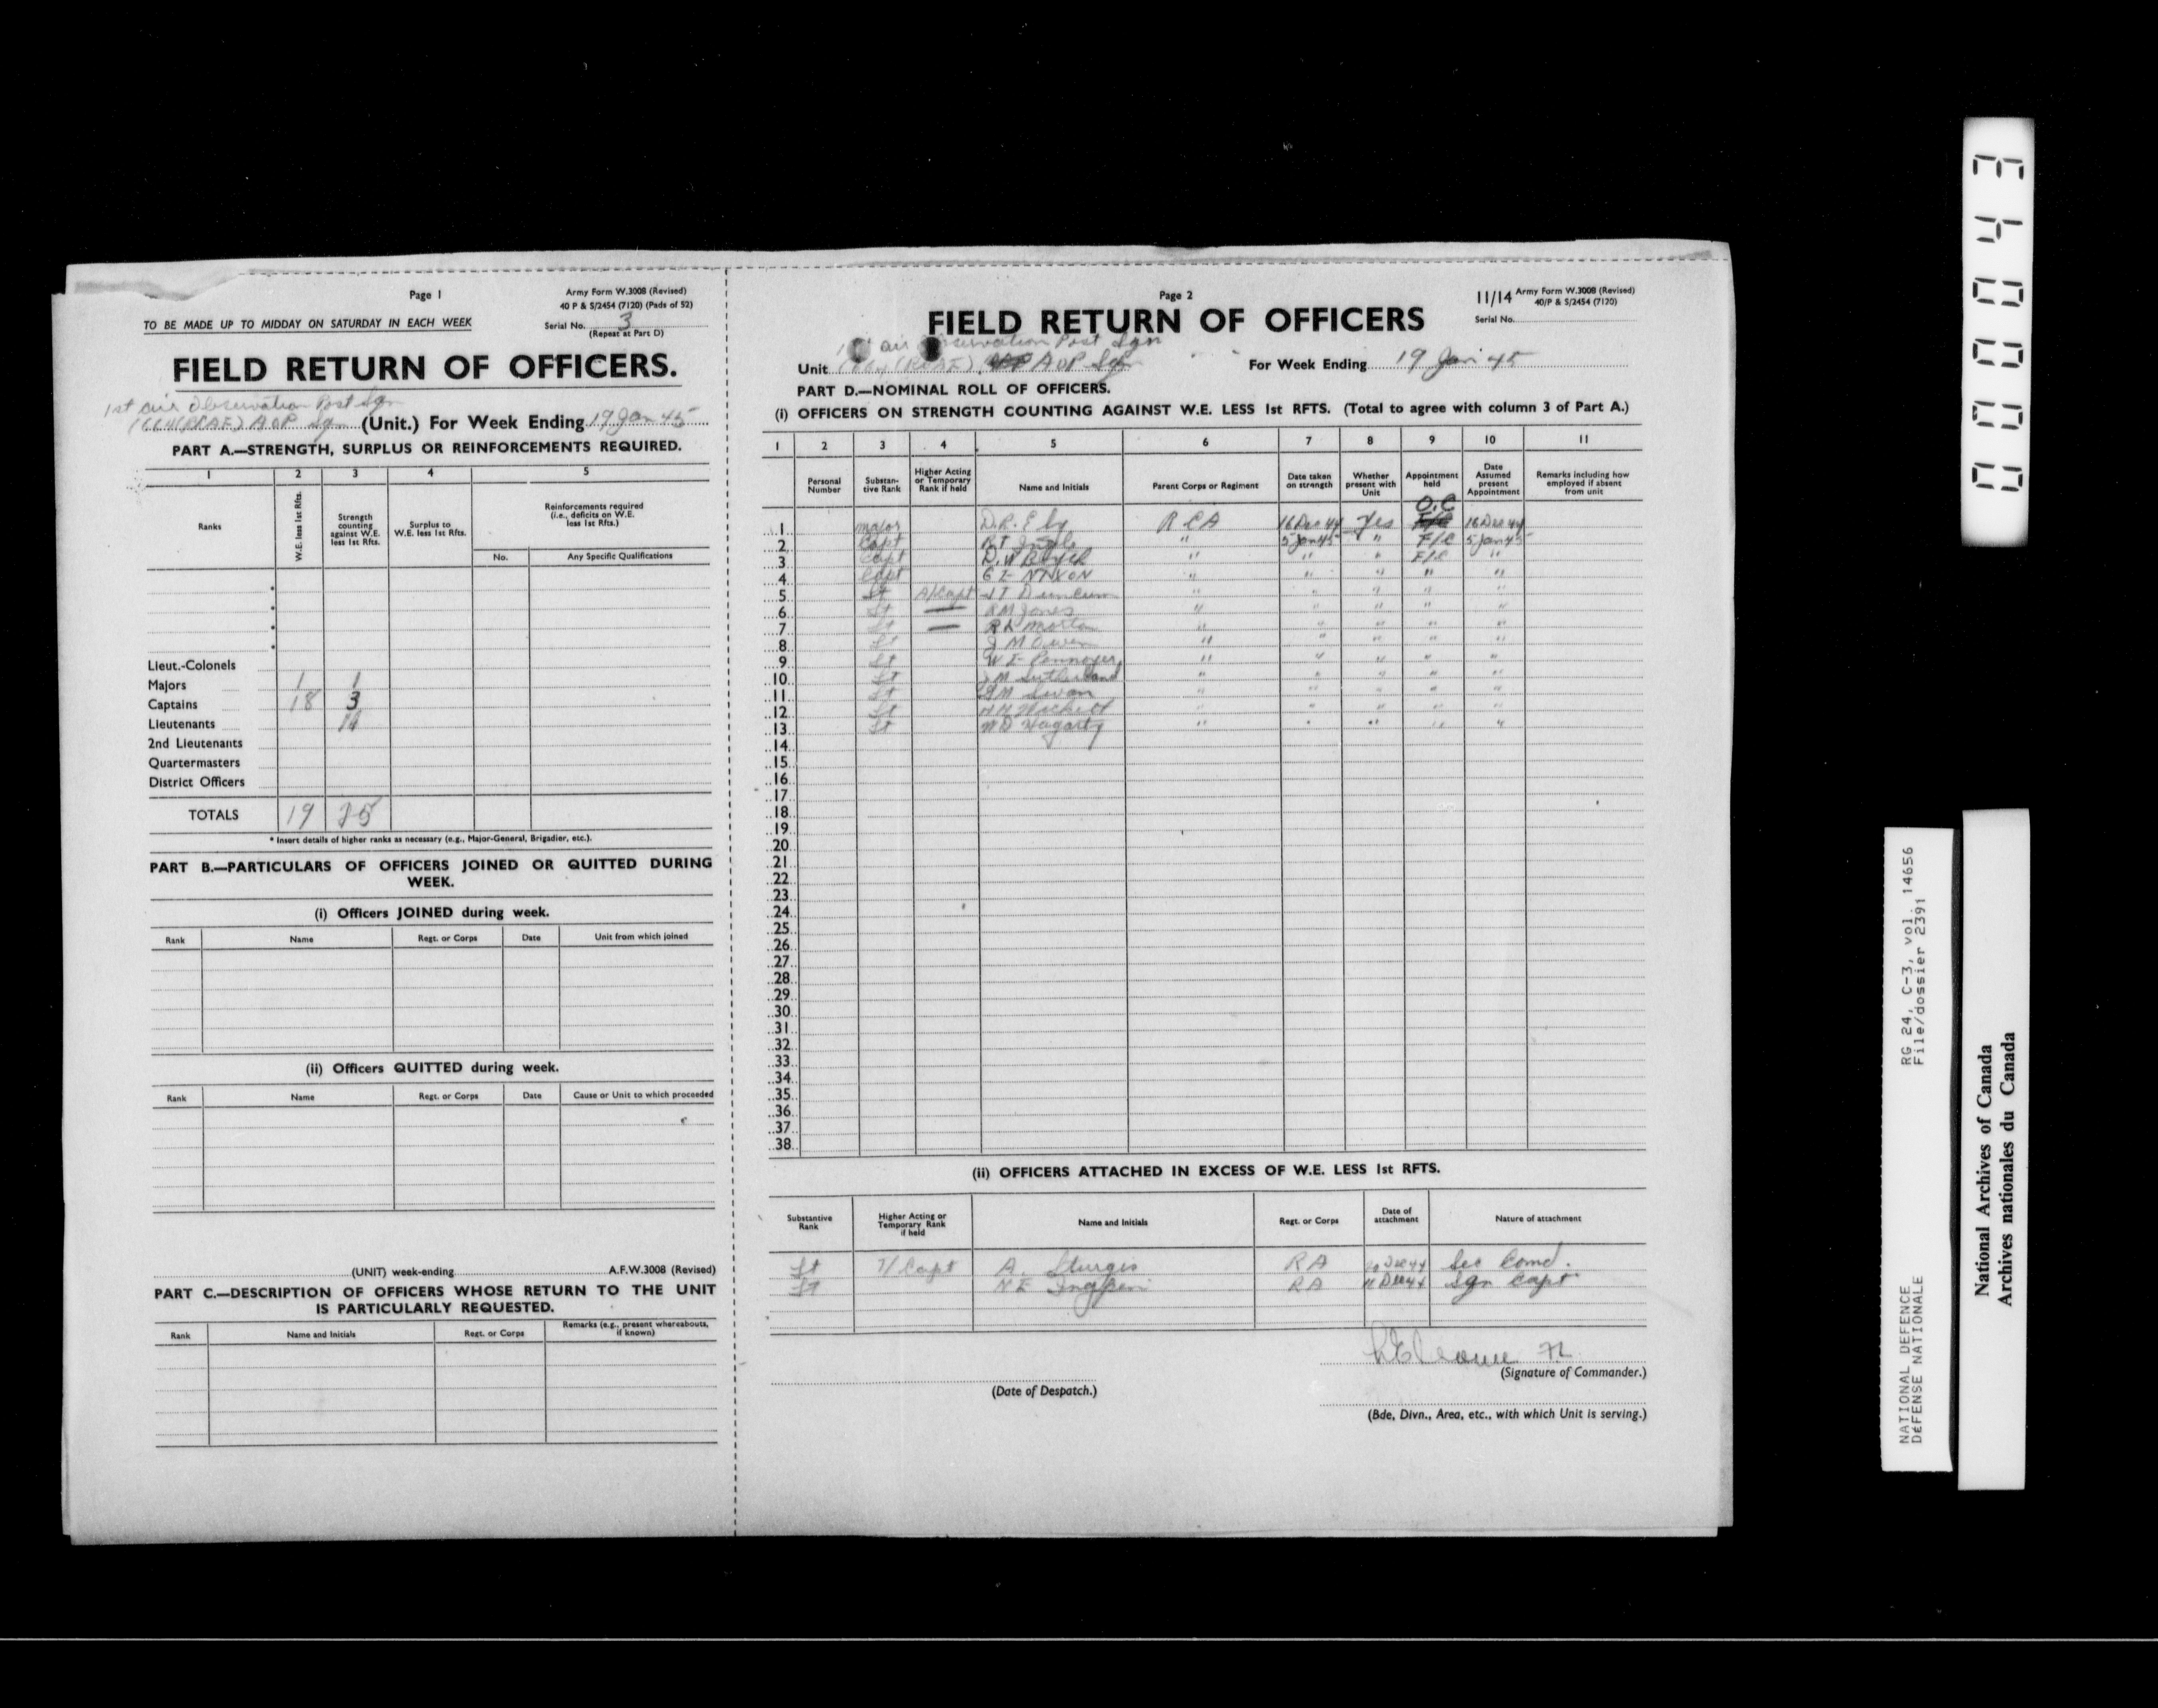 Page 1
Army Form W.3008 (Revised)
40 P & S/2454 (7120) (Pads of 52)
TO BE MADE UP TO MIDDAY ON SATURDAY IN EACH WEEK
Serial No. 3
(Repeat at Part D)
FIELD RETURN OF OFFICERS.
1st Air Observation Post Sqn
(RCAF) AOP Sqn (Unit.) For Week Ending 19 Jan 45
PART A.—STRENGTH, SURPLUS OR REINFORCEMENTS REQUIRED.
1 2 3 4 5
Ranks
W.E. less 1st Rfts.
Strength counting against W.E. less 1st Rfts.
Surplus to W.E. less 1st Rfts.
Reinforcements required (i.e., deficits on W.E. less 1st Rfts.)
No. Any Specific Qualifications
Lieut.-Colonels
Majors 1 1
Captains 18 3
Lieutenants
2nd Lieutenants
Quartermasters
District Officers
TOTALS 19
* Insert details of higher ranks as necessary (e.g., Major-General, Brigadier, etc.).
PART B.—PARTICULARS OF OFFICERS JOINED OR QUITTED DURING WEEK.
(i) Officers JOINED during week.
Rank Name Regt. or Corps Date Unit from which joined
(ii) Officers QUITTED during week.
Rank Name Regt. or Corps Date Cause or Unit to which proceeded
(UNIT) week-ending A.F.W.3008 (Revised)
PART C.—DESCRIPTION OF OFFICERS WHOSE RETURN TO THE UNIT IS PARTICULARLY REQUESTED.
Rank Name and Initials Regt. or Corps Remarks (e.g., present whereabouts, if known)
Page 2
11/14 Army Form W.3008 (Revised)
40/P & S/2454 (7120)
Serial No.
FIELD RETURN OF OFFICERS
Air Observation Post Sqn
Unit (RCAF) AOP Sqn For Week Ending 19 Jan 45
PART D.—NOMINAL ROLL OF OFFICERS.
(i) OFFICERS ON STRENGTH COUNTING AGAINST W.E. LESS 1st RFTS. (Total to agree with column 3 of Part A.)
1 2 3 4 5 6 7 8 9 10 11
Personal Number
Substantive Rank
Higher Acting or Temporary Rank if held
Name and Initials
Parent Corps or Regiment
Date taken on strength
Whether present with Unit
Appointment held
Date Assumed present Appointment
Remarks including how employed if absent from unit
1 Major D.R. Eby RCA 16 Dec 44 Yes O.C 16 Dec 44
2 Capt " 5 Jan 45 " F/C 5 Jan 45
3 Capt D.W Boyd " " " F/C "
4 Capt NIXON " " " " "
5 Lt A/Capt Duncan " " " " "
6 Lt — RM Jones " " " " "
7 Lt — RL Morton " " " " "
8 Lt J M Owen " " " " "
9 Lt W E Pennoyer " " " " "
10 Lt J M Sutherland " " " " "
11 Lt Swan " " " " "
12 Lt " " " " "
13 Lt Hagarty " " " " "
14
15
16
17
18
19
20
21
22
23
24
25
26
27
28
29
30
31
32
33
34
35
36
37
38
(ii) OFFICERS ATTACHED IN EXCESS OF W.E. LESS 1st RFTS.
Substantive Rank
Higher Acting or Temporary Rank if held
Name and Initials
Regt. or Corps
Date of attachment
Nature of attachment
Lt T/Capt A. Sturgis RA Dec 44 Sec Comd.
Lt RA 11 Dec 44 Sqn Capt
(Signature of Commander.)
(Date of Despatch.)
(Bde, Divn., Area, etc., with which Unit is serving.)
000043
NATIONAL DEFENCE RG 24, C-3, vol. 14656
DÉFENSE NATIONALE File/dossier 2391
National Archives of Canada
Archives nationales du Canada